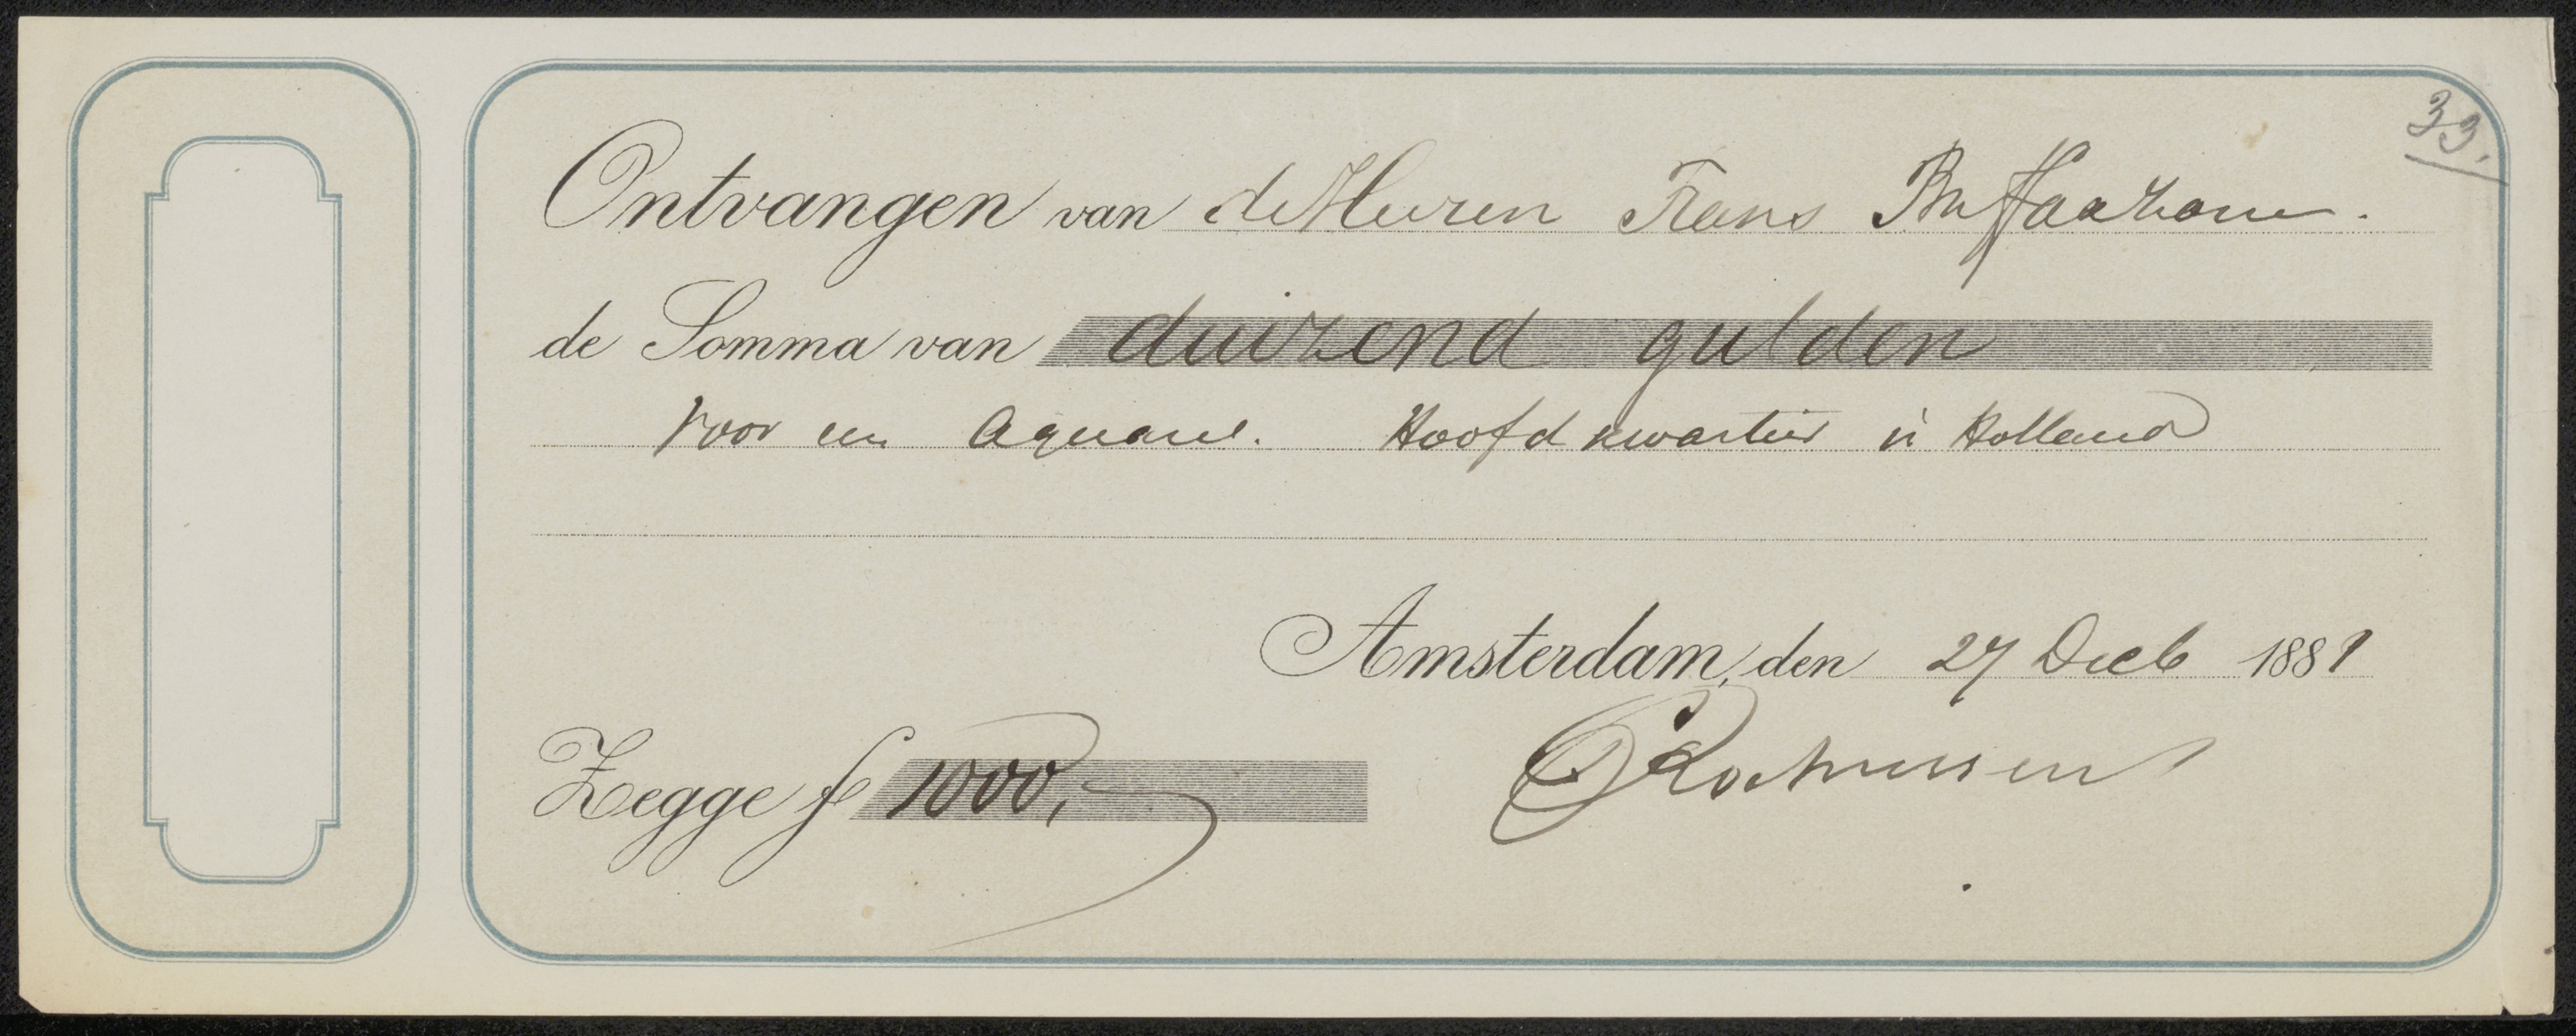 33.
Ontvangen van de Heeren Frans Buffa & Zonen.
de Somma van duizend gulden
Voor een Aquarel. Hoofdkwartier in Holland
Amsterdam, den 27 Decb 1881
Zegge f 1000,-
C Rochussen